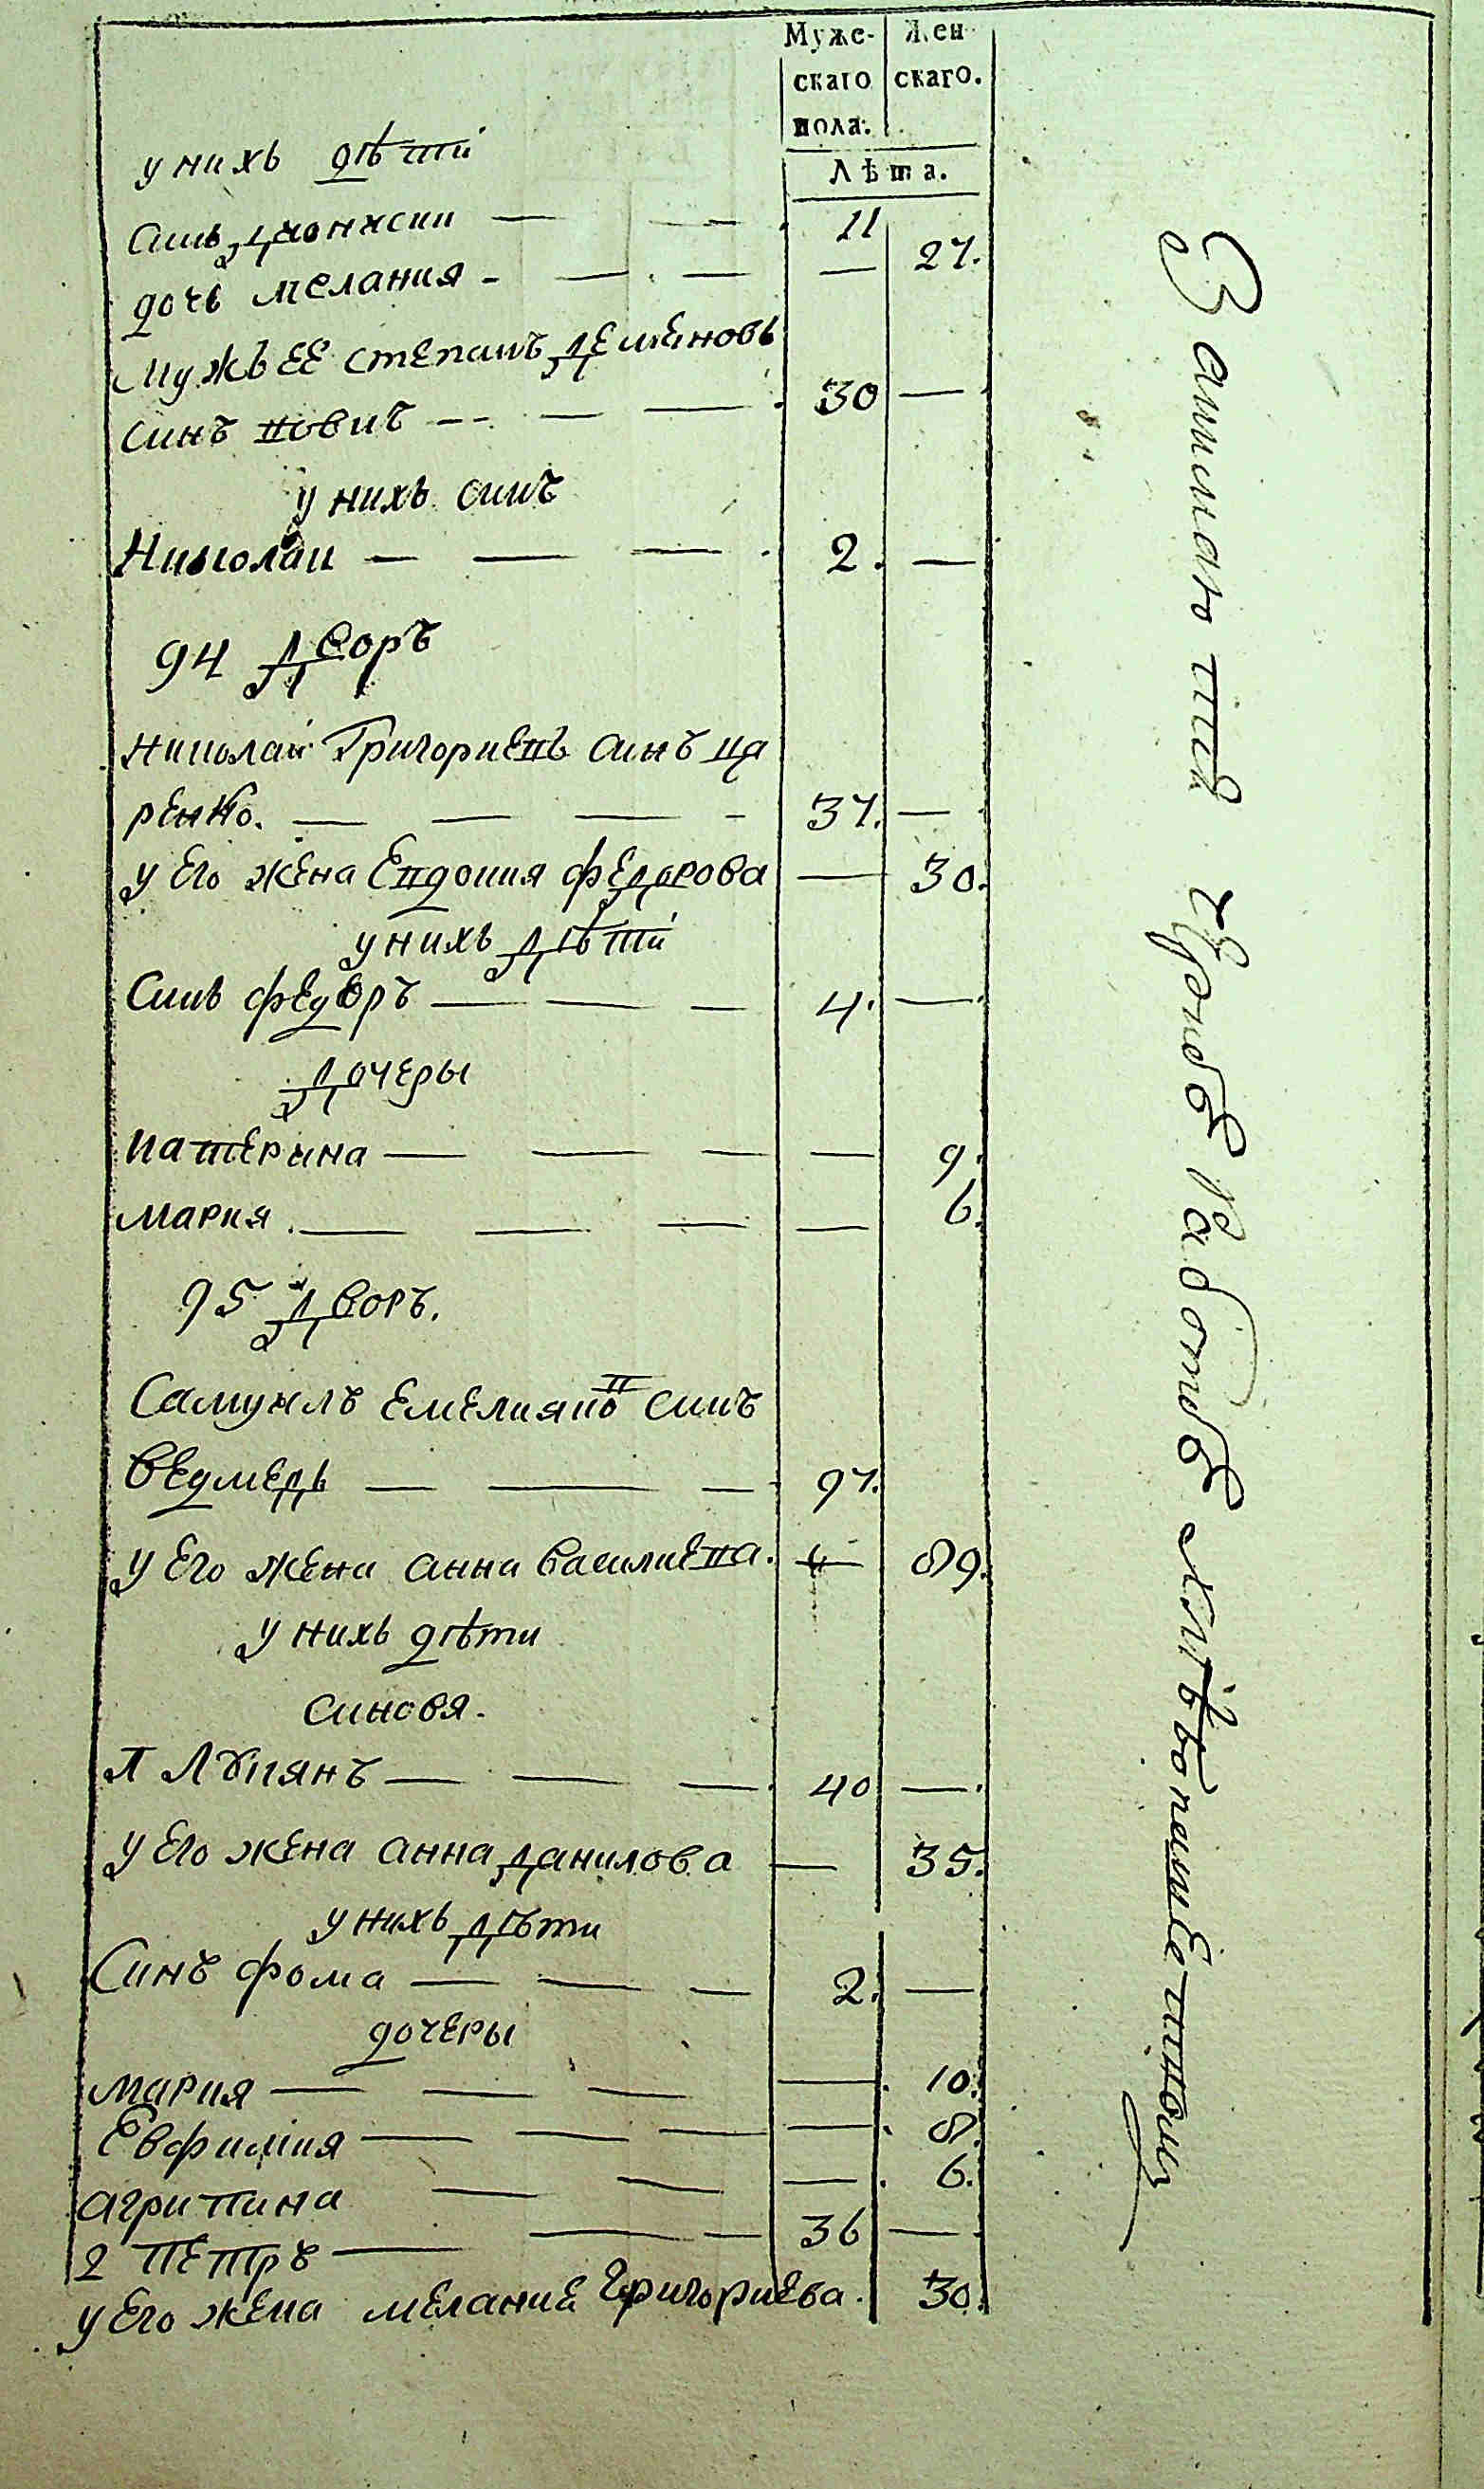 Муже- Жен
скаго скаго.
пола.
Лѣта.
у нихъ дѣти
синъ Дионисии — — 11
дочь мелания - — — — 27.
мужъ ЕЕ степанъ Деменовъ
синъ пович -- — — 30 —
у нихъ синъ
Николаи — — — 2. —
94 Дворъ
николаи Григориевъ синъ ца
ренко. — — — - 37. —
у Его жена Евдокия федорова — 30.
у нихъ дѣти
Синъ федоръ — — — 4. —
Дочеры
катерина — — — — 9.
мария. — — — — 6.
95 Дворъ.
Самуилъ Емелияно в синъ
Ведмедь — — — 97.
у Его жена анна василиева. — 89.
у нихъ дѣти
синовя.
П Лукянъ — — — 40 —
у Его жена анна Данилова — 35.
у нихъ дѣти
Синъ фома — — — 2. —
дочеры
мария — — — — 10.
Евфимия — — — — 8.
агрипина — — — 6.
2 Петръ — — — 36 —
у Его жена мелание Григориева. 30.